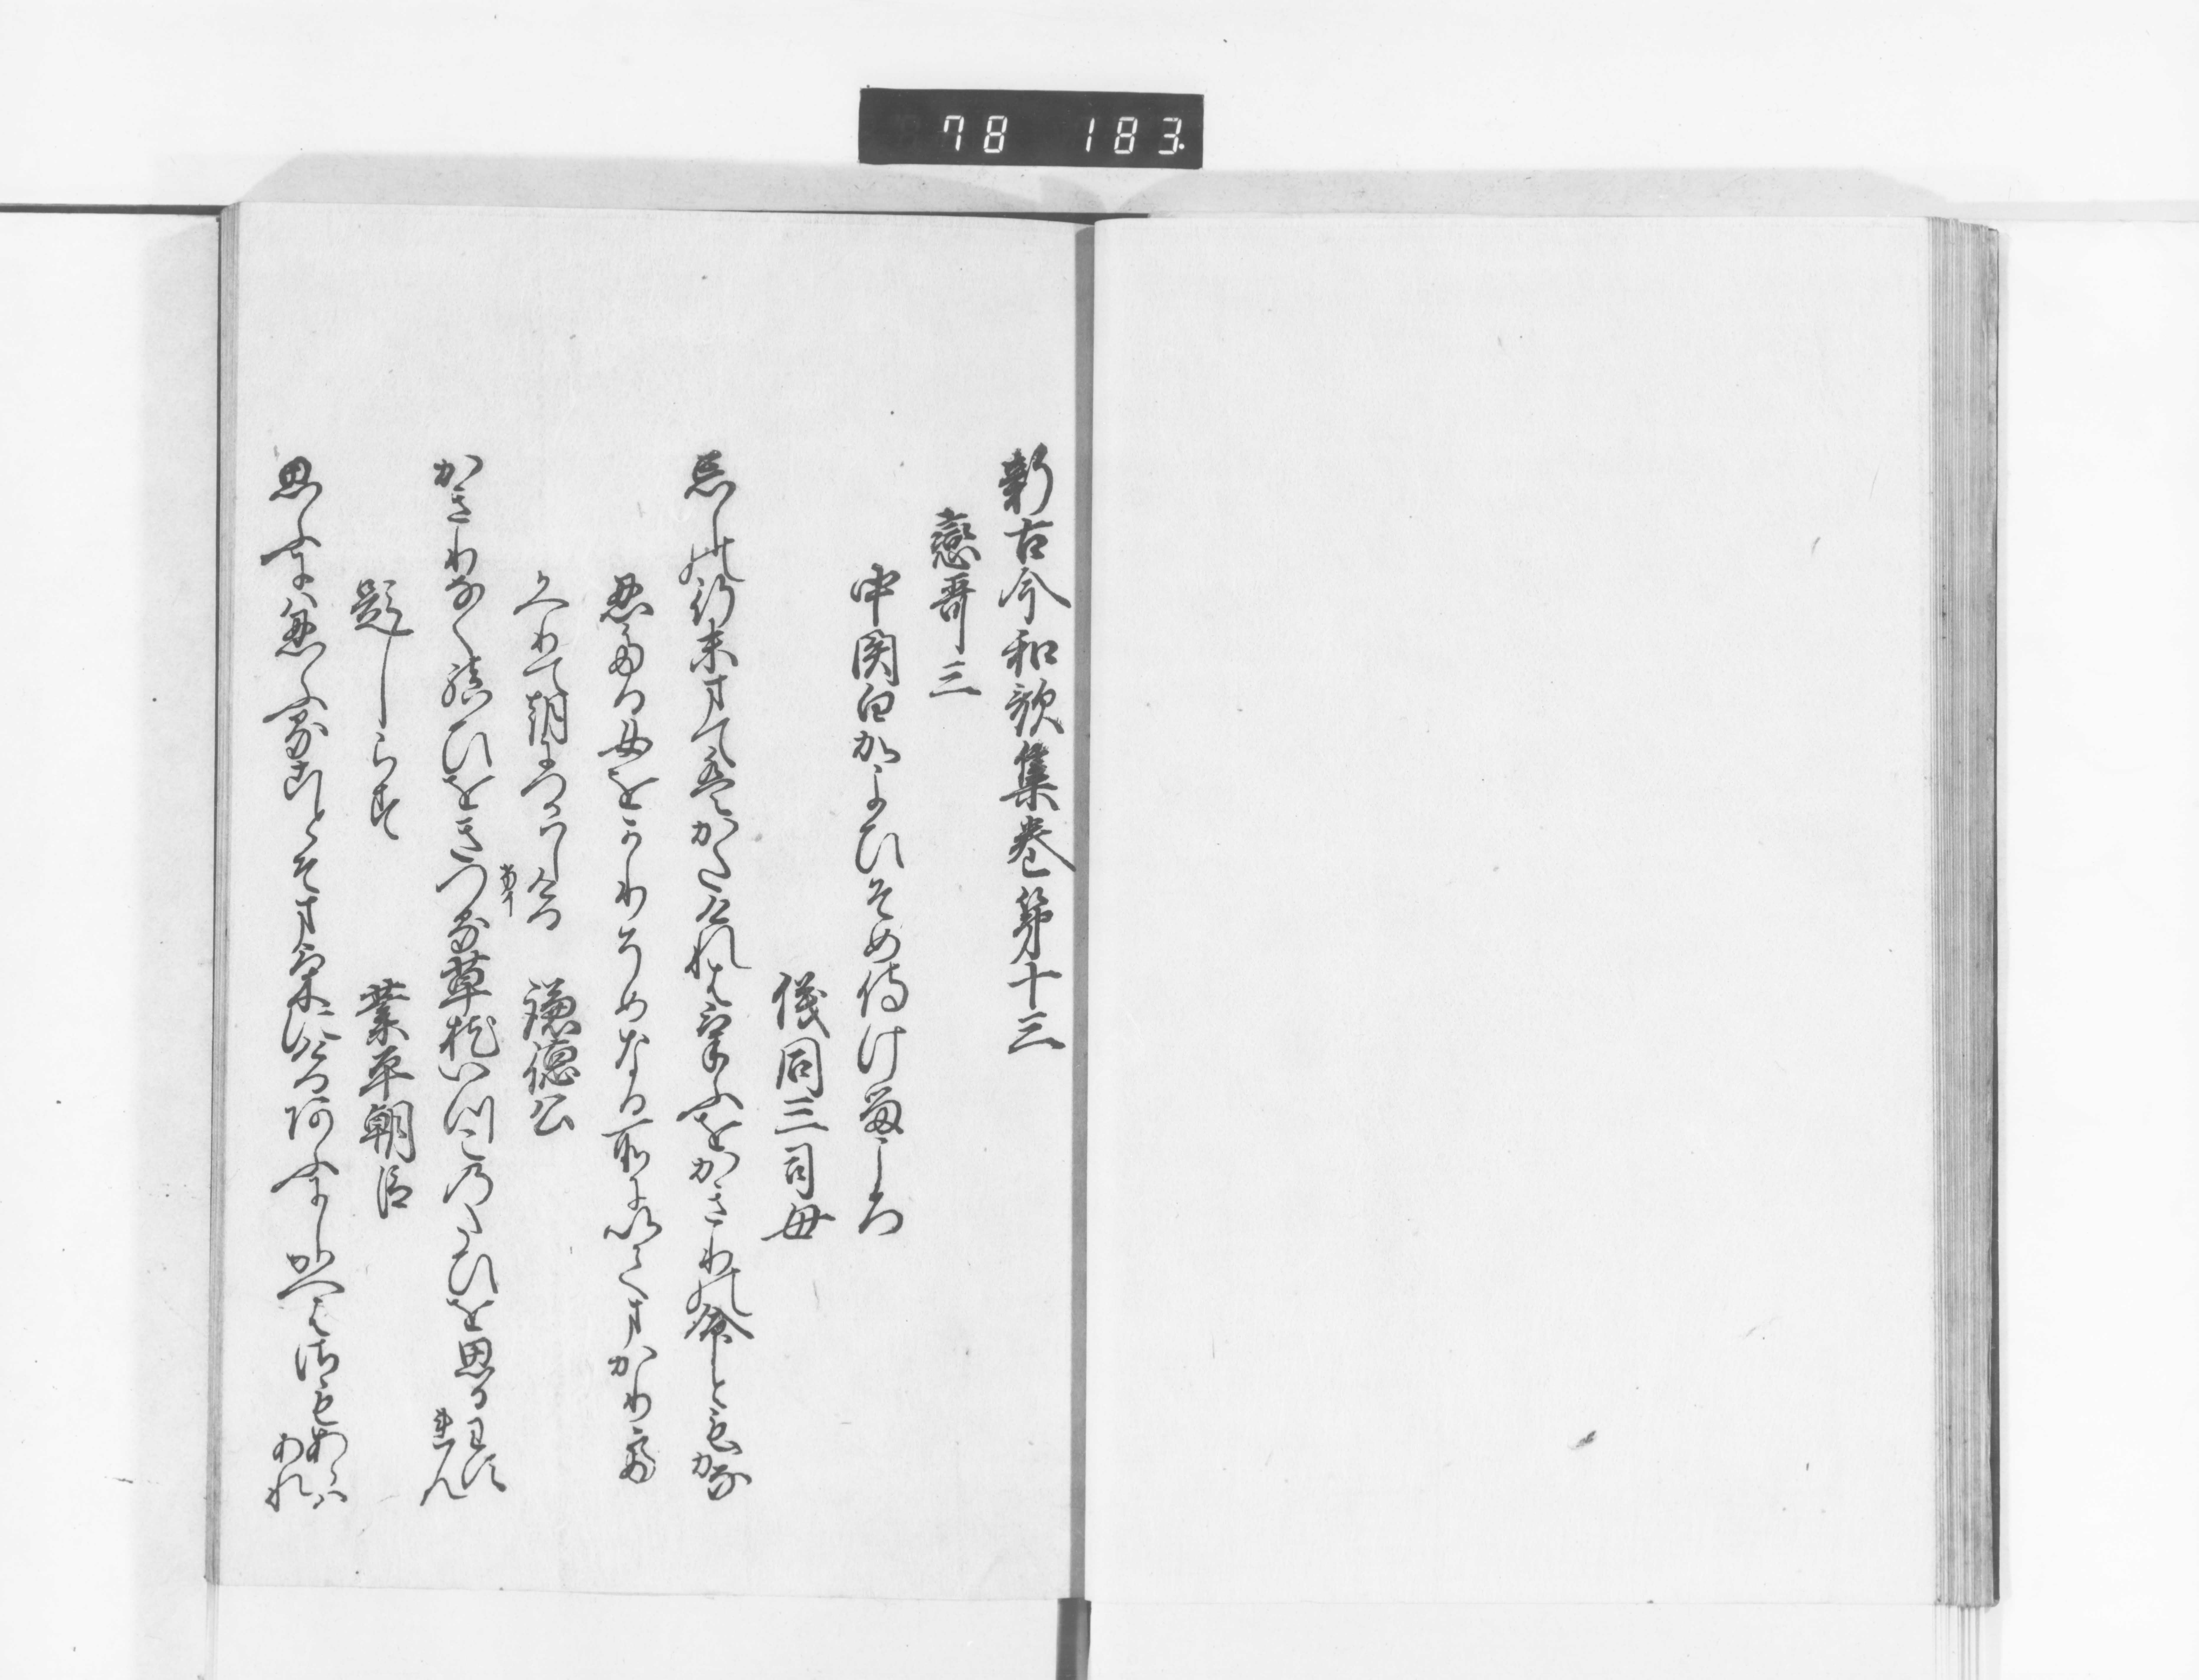 78 183
新古今和歌集巻第十三
戀哥三
中関白かよひそめ侍けるころ
儀同三司母
忘しの行末まてはかたけれはけふをかきりの命ともかな
忍たる女をかりそめなる所にゐてまかりて
かへりて朝につかはしける
謙徳公
かきりなく結ひをきつる草枕いつこのたひを思わすれん
草
題しらす
業平朝臣
思ふには忍ふる事そまけにけるあふにしかへはさもあらはあれ